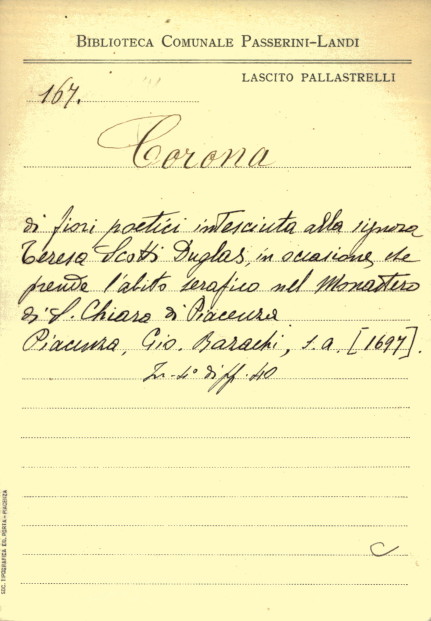 BIBLIOTECA COMUNALE PASSERINI-LANDI
LASCITO PALLASTRELLI
167.
Corona
di fiori poetici intesciuta alla signora
Teresa Scotti Duglas, in occasione, che
prende l'abito serafico nel Monastero
di S. Chiara di Piacenza
Piacenza, Gio. Bazachi, s.a. [1697].
In-4° di ff. 40
C
SOC. TIPOGRAFICA ED. PORTA - PIACENZA